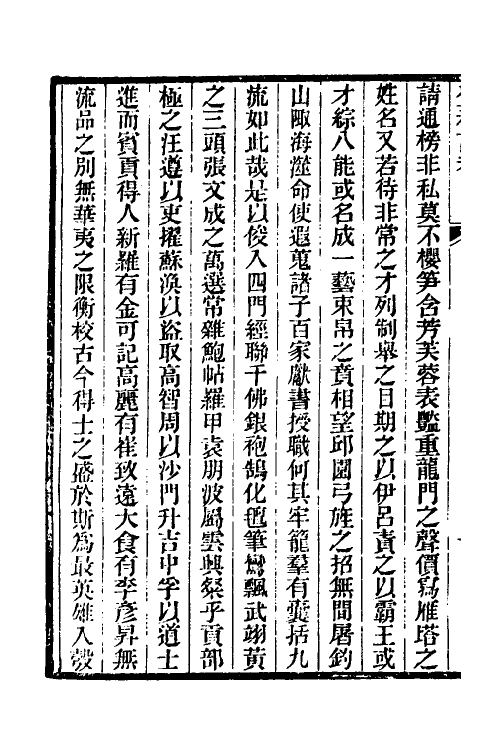 請通榜非私莫不櫻筍含芳芙蓉表豔重龍門之聲價寫雁塔之
姓名又若待非常之才列制舉之日期之以伊呂責之以霸王或
才綜八能或名成一藝束帛之賁相望邱園弓旌之招無間屠釣
山陬海澨命使遐蒐諸子百家獻書授職何其牢籠羣有囊括九
流如此哉是以俊入四門經聯千佛銀袍鵠化毬筆鸞飄武翊黃
之三頭張文成之萬選常雜鮑帖羅甲袁朋波屬雲興粲乎貢部
極之汪遵以吏擢蘇渙以盜取高智周以沙門升吉中孚以道士
進而賓貢得人新羅有金可記高麗有崔致遠大食有李彥昇無
流品之別無華夷之限衡校古今得士之盛於斯為最英雄入彀